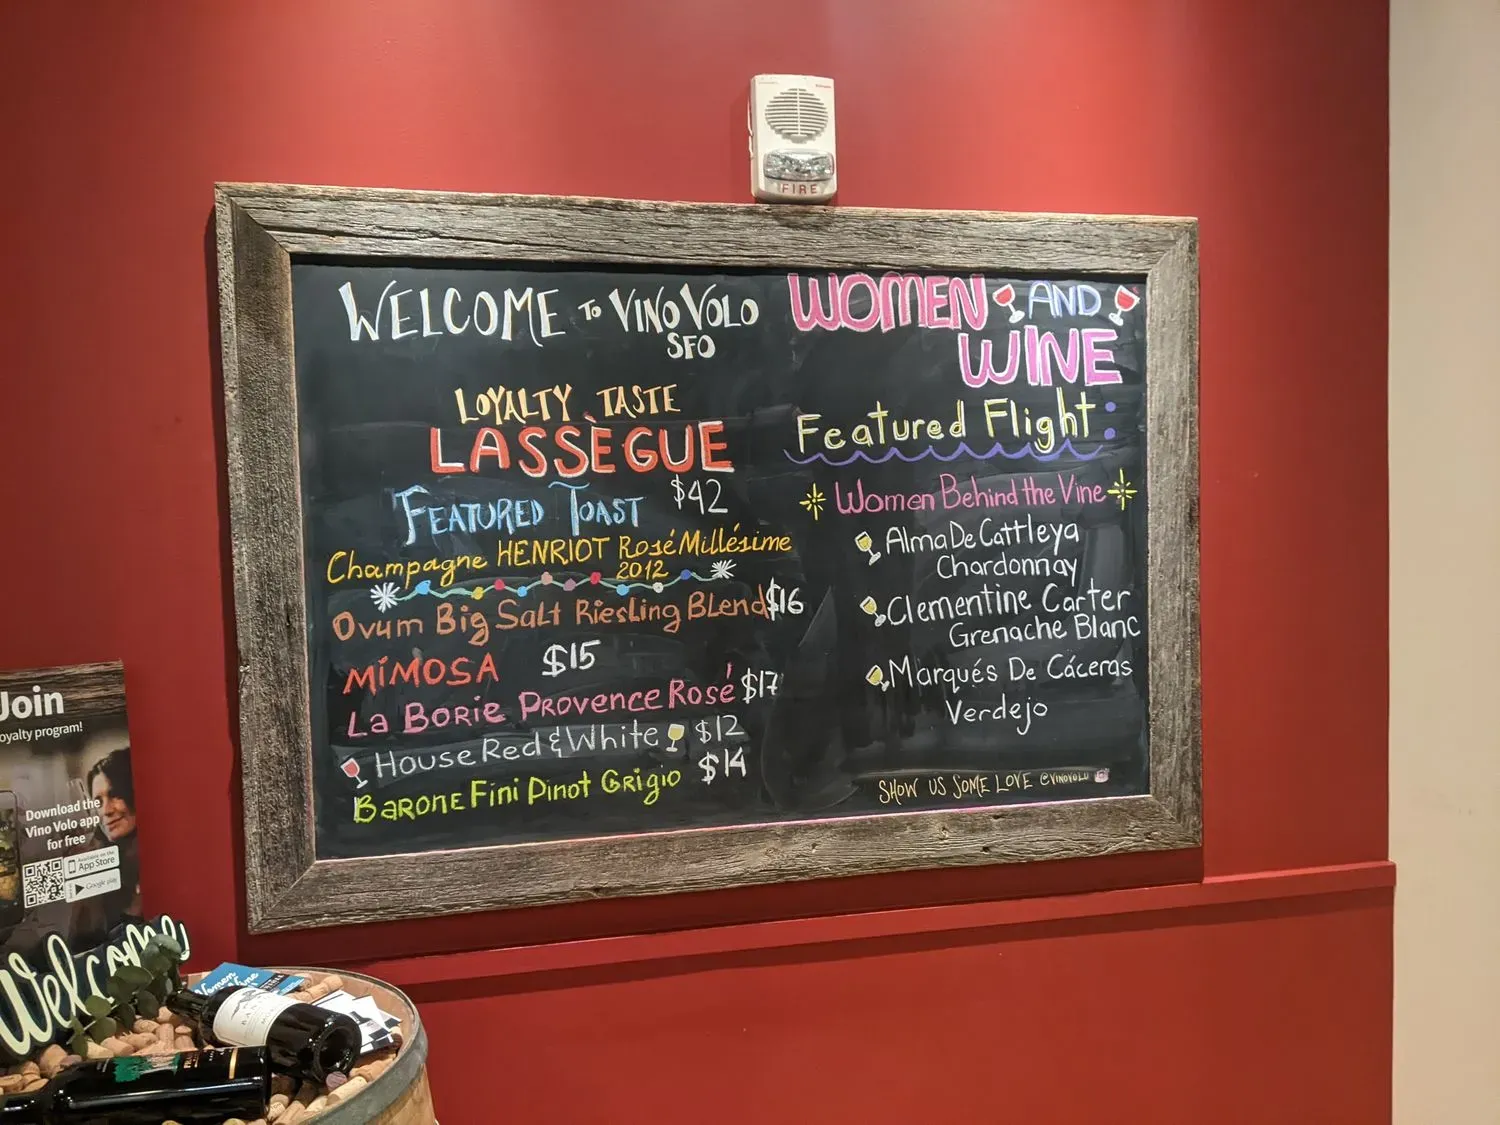 FIRE
WELCOME TO VINO VOLO
SFO
LOYALTY TASTE
LASSÈGUE
FEATURED TOAST $42
Champagne HENRIOT Rosé Millésime
2012
Ovum Big Salt Riesling Blend $16
MIMOSA $15
La Borie Provence Rosé $17
House Red & White $12
Barone Fini Pinot Grigio $14
WOMEN AND
WINE
Featured Flight:
Women Behind the Vine
Alma De Cattleya
Chardonnay
Clementine Carter
Grenache Blanc
Marqués De Cáceras
Verdejo
SHOW US SOME LOVE @VINOVOLO
Join
oyalty program!
Download the
Vino Volo app
for free
App Store
Google play
Welcome
Women